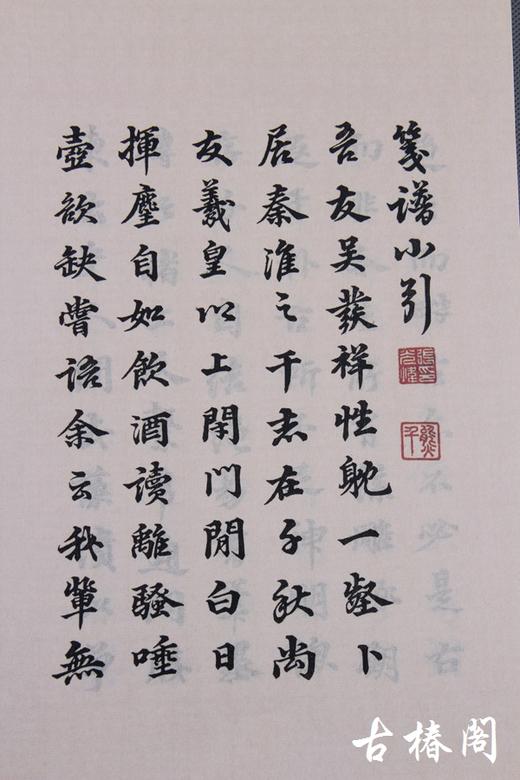 箋譜小引
吾友吳發祥性躭一壑卜
居秦淮之干志在千秋尚
友羲皇以上閉門閒白日
揮麈自如飲酒讀離騷唾
壺欲缺嘗語余云我輩無
古椿閣